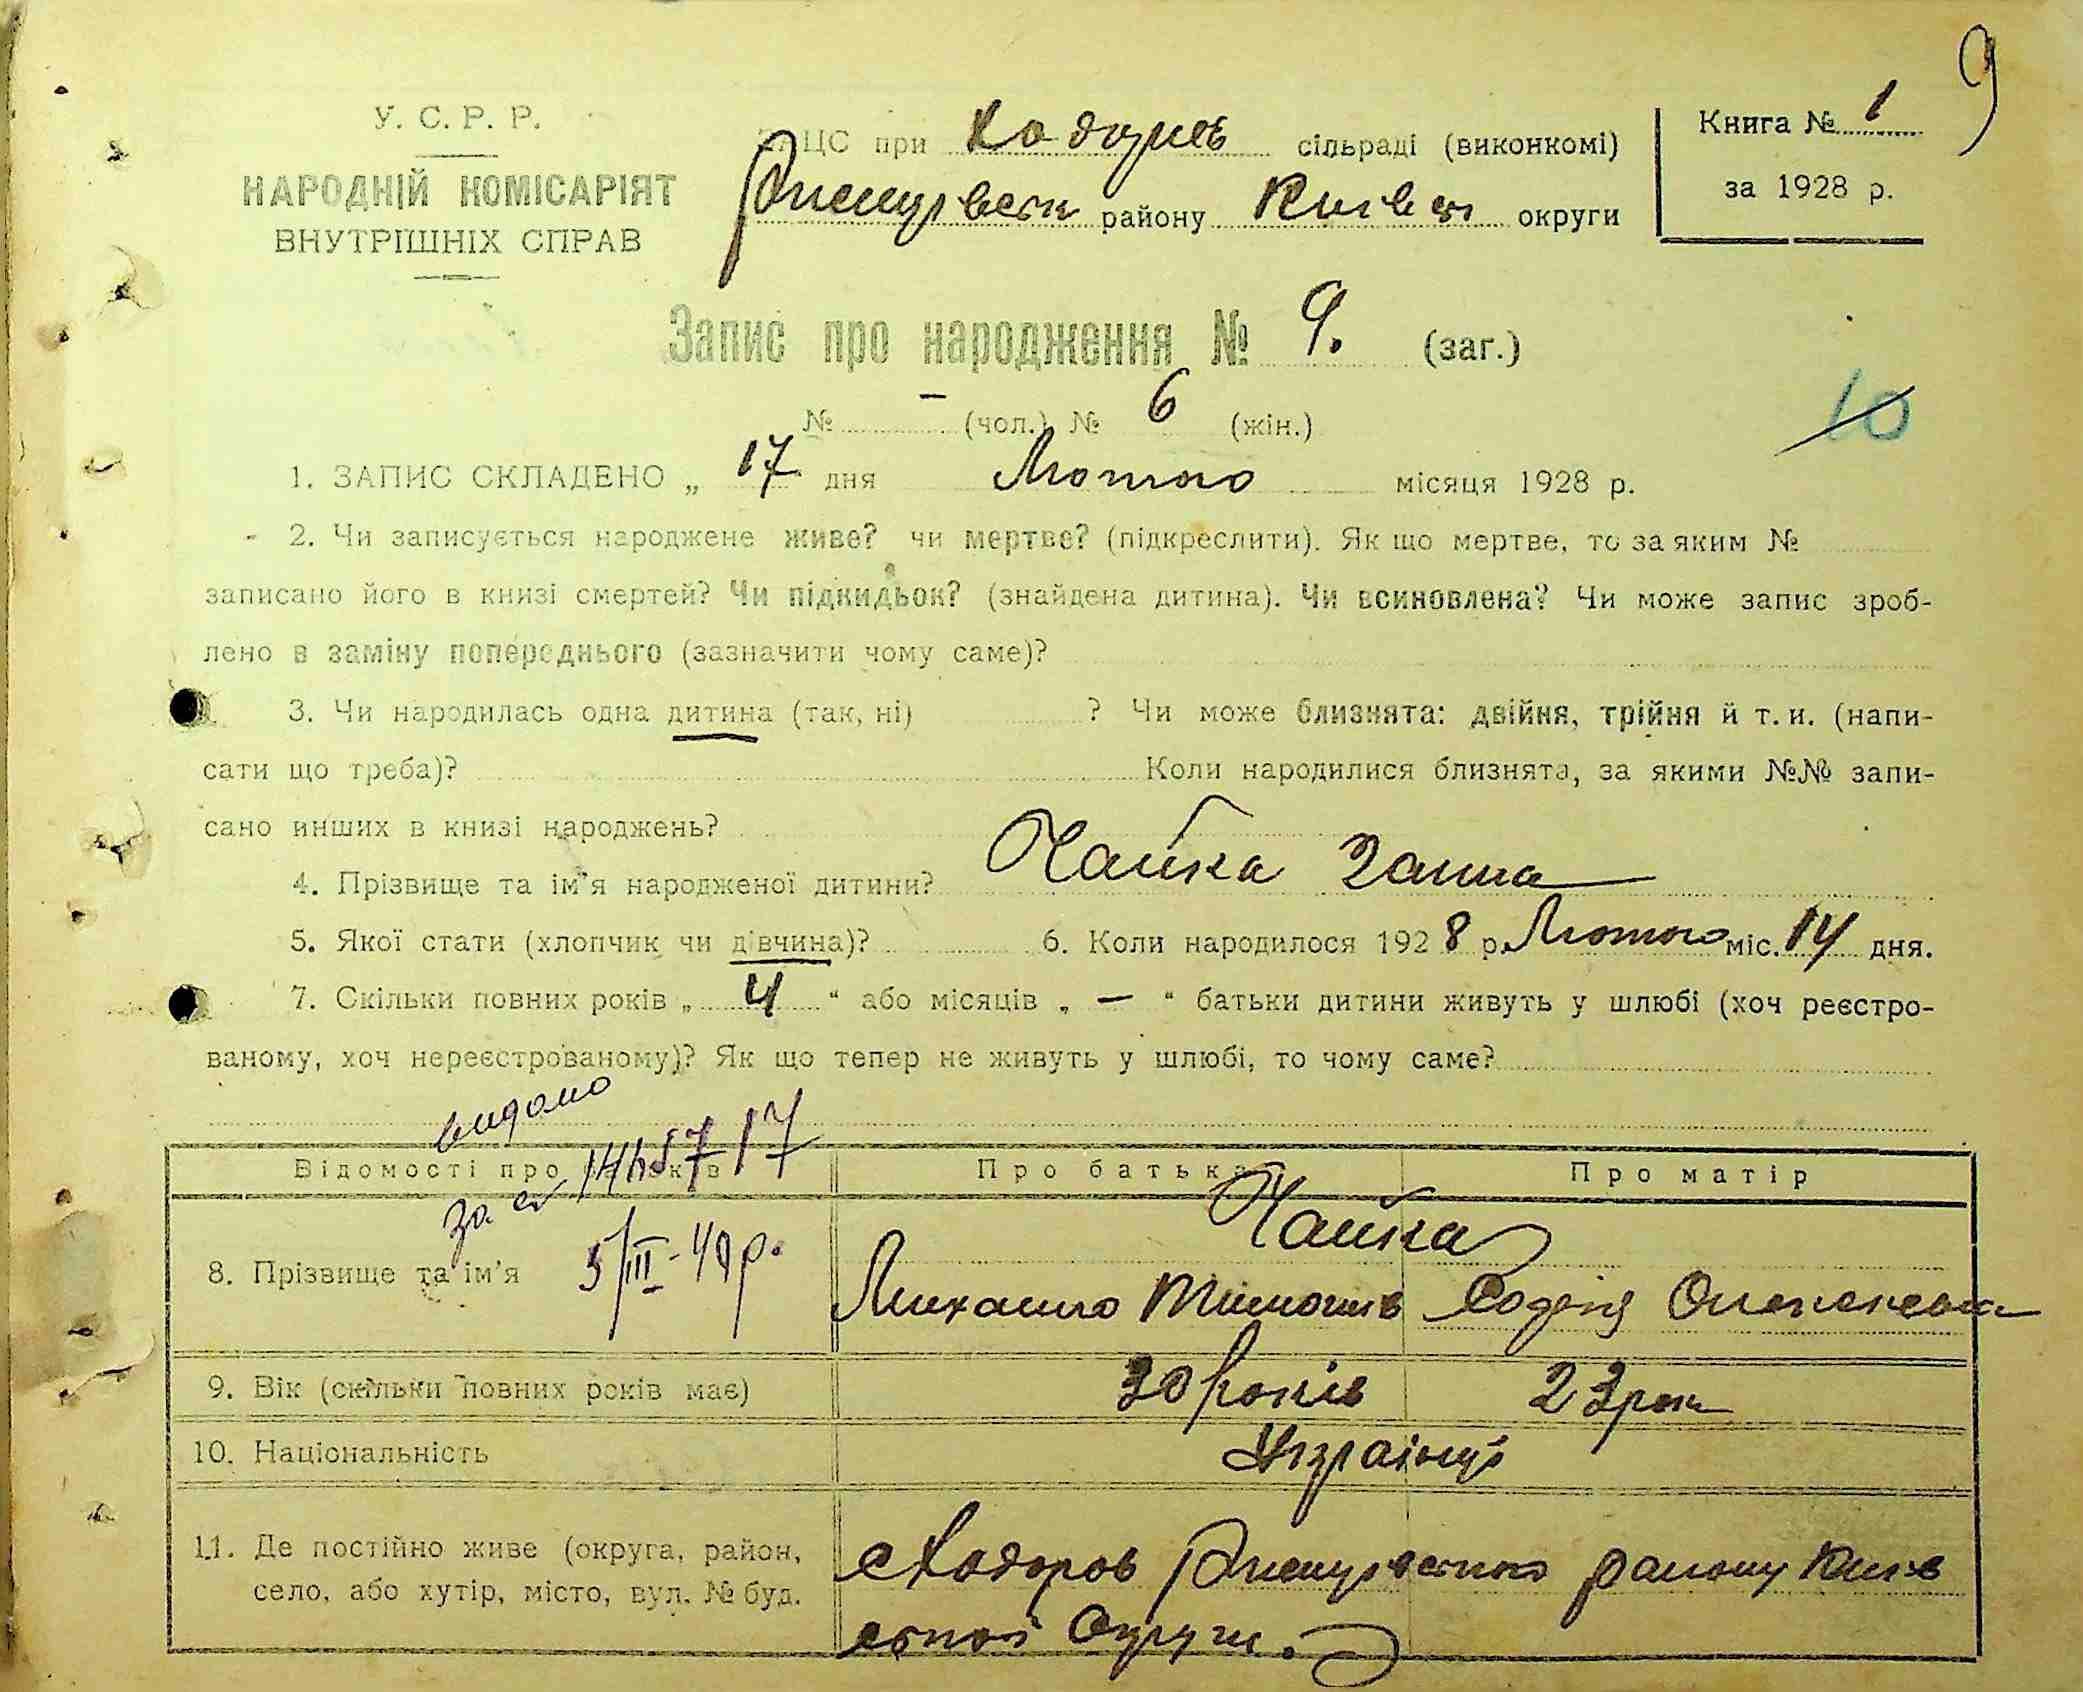 9
У. С. Р. Р.
НАРОДНІЙ КОМІСАРІЯТ
ВНУТРІШНІХ СПРАВ
ЗАЦС при Ходорів сільраді (виконкомі)
Ржищівськ району Київськ округи
Книга № 1
за 1928 р.
Запис про народження № 9. (заг.)
№ — (чол.) № 6 (жін.)
10
1. ЗАПИС СКЛАДЕНО „ 17 дня Лютого місяця 1928 р.
2. Чи записується народжене живе? чи мертве? (підкреслити). Як що мертве, то за яким №
записано його в книзі смертей? Чи підкидьок? (знайдена дитина). Чи всиновлена? Чи може запис зроб-
лено в заміну попереднього (зазначити чому саме)?
3. Чи народилась одна дитина (так, ні) ? Чи може близнята: двійня, трійня й т. и. (напи-
сати що треба)? Коли народилися близнята, за якими №№ запи-
сано инших в книзі народжень?
4. Прізвище та ім'я народженої дитини? Чайка Ганна
5. Якої стати (хлопчик чи дівчина)? 6. Коли народилося 1928 р. Лютого міс. 14 дня.
7. Скільки повних років „ 4 “ або місяців „ — “ батьки дитини живуть у шлюбі (хоч реєстро-
ваному, хоч нереєстрованому)? Як що тепер не живуть у шлюбі, то чому саме?
видано
5/III-49 р.
Відомості про батьків Про батька Про матір
8. Прізвище та ім'я Чайка
Михайло Тимошів Олексієвна
9. Вік (скільки повних років має) 30 років 23 рок
10. Національність Українці
11. Де постійно живе (округа, район,
село, або хутір, місто, вул. № буд.
с Ходоров Ржищівського району Київ
ської Округи.